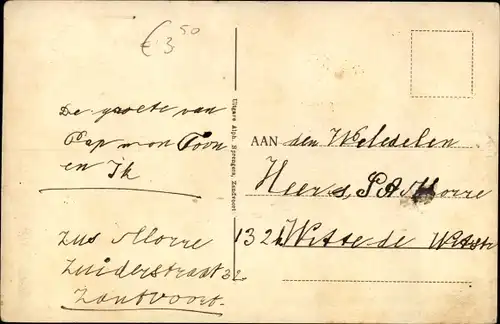 € 3 50
De groete van
Pap mon Toon
en Ik
Zus Morre
Zuiderstraat 32
Zantvoort
Uitgave Alph. Sprengers, Zandvoort
AAN den Weledelen
Heer S, P A Morre
132 Witte de Withstr